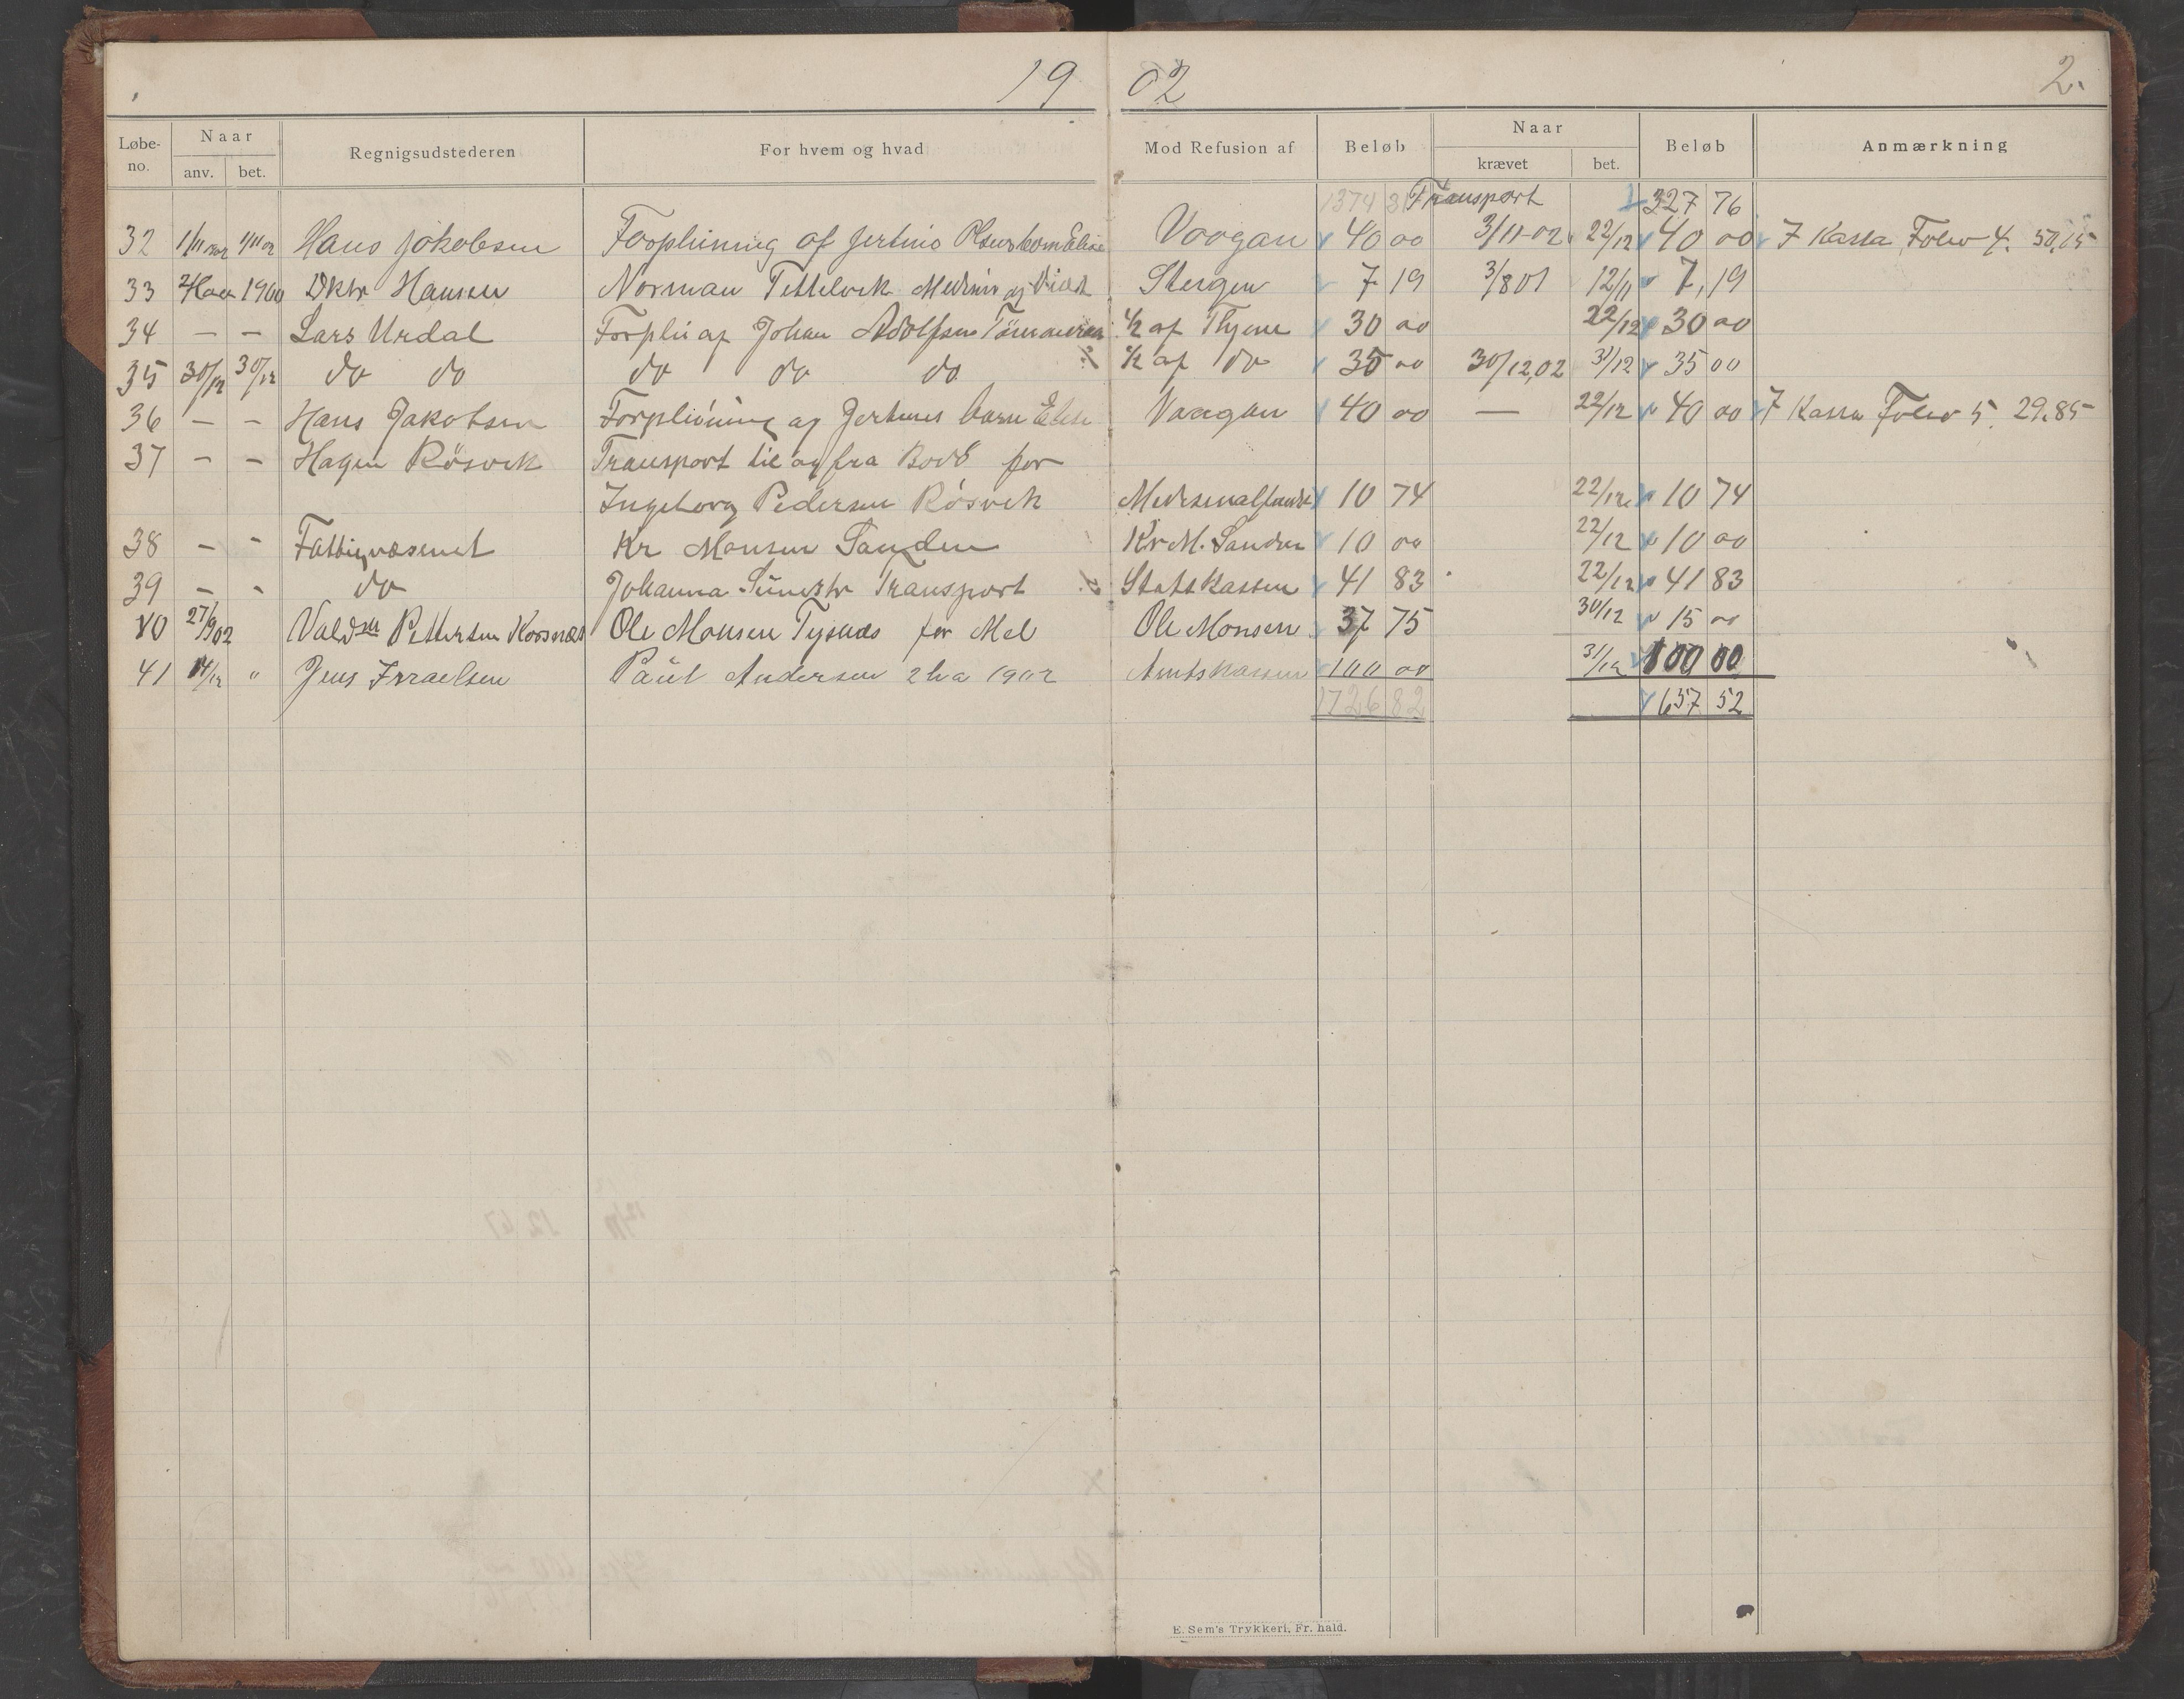 19 02 2.
Løbe-no. Naar anv. bet. Regnigsudstederen For hvem og hvad Mod Refusion af Beløb Naar krævet bet. Beløb Anmærkning
1374 31 Transport 327 76
32 1/11 1/11 02 Hans Jakobsen Forpleining af Jertins Olsens barn Elise Vaagan 40 00 3/11-02 22/12 40 00 7 Kassa Folio 4. 50,15
33 1900 Dktr Hansen Norman Tettelvik Medisin og Diæt Steigen 7 19 3/8 01 12/11 7,19
34 — — Lars Urdal Forpli af Johan Adolfsen 1/2 af Thjene 30 00 22/12 30 00
35 30/12 30/12 do do do do do 1/2 af do 35 00 30/12,02 31/12 35 00
36 — — Hans Jakobsen Forpleining af Jertins barn Elise Vaagan 40 00 — 22/12 40 00 7 Kassa Folio 5. 29.85
37 — — Hagen Rösvik Transport til og fra Bodö for
Ingeborg Pedersen Rösvik Medisinalfondet 10 74 22/12 10 74
38 — - Fattigvæsenet Kr Monsen Sanden Kr M. Sanden 10 00 22/12 10 00
39 — - do Johanna Simestr Transport Statskassen 41 83 22/12 41 83
40 27/9 02 Petersen Korsnæs Ole Monsen Tysnes for Mel Ole Monsen 37 75 30/12 15 00
41 14/12 " Jens Israelsen Paul Andersen 2 ha 1902 Amtskassen 100 00 31/12 100 00
1726 82 657 52
E. Sem's Trykkeri, Fr. hald.